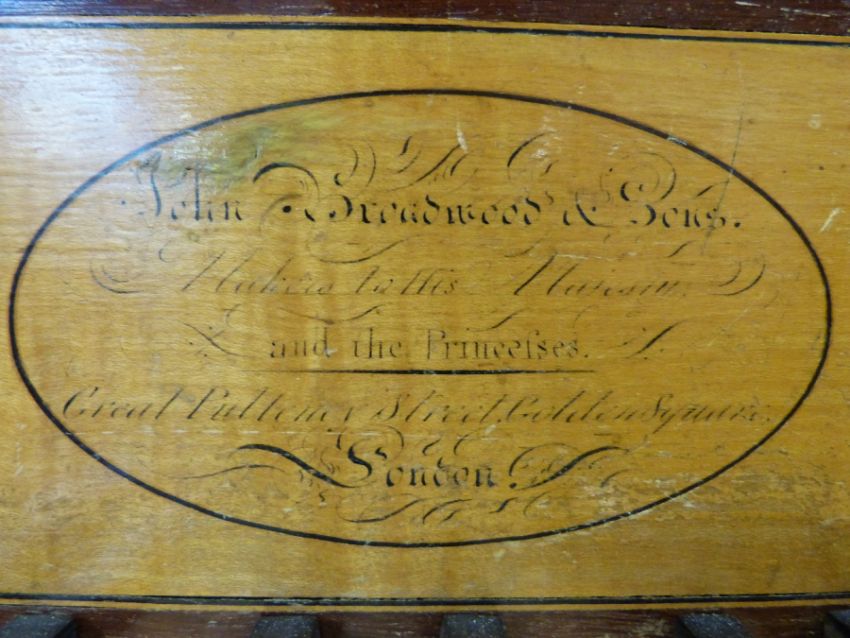 John Broadwood & Sons.
Makers to His Majesty
and the Princeſses.
Great Pulteney Street, Golden Square.
London.